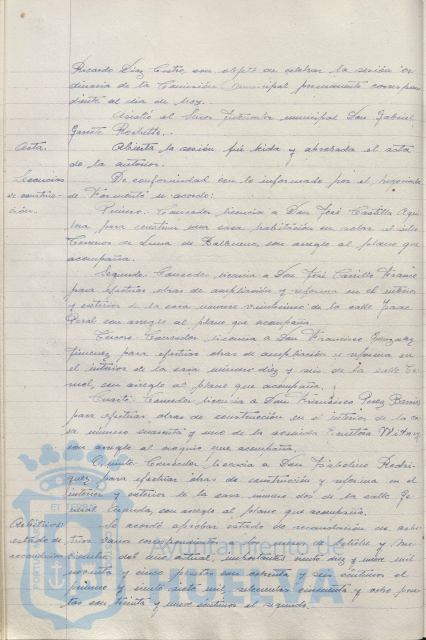 Ricardo Díaz Castro, con objeto de celebrar la sesión or
dinaria de la Comisión municipal permanente correspon
diente al día de hoy.
Asistió el Señor Interventor municipal Don Gabriel
García
Acta.
Abierta la sesión fué leida y aprobada el acta
de la anterior.
Licencias
de construc-
ción.
De conformidad con lo informado por el Negociado
de Fomento se acordó:
Primero. Conceder licencia a Don José Castilla Agui
lera para construir una casa habitación en solar al sitio
de con arreglo al plano que
acompaña.
Segundo. Conceder licencia a Don José Carrillo
para efectuar obras de ampliación y reforma en el interior
y exterior de la casa número veintiuno de la calle Isaac
Peral con arreglo al plano que acompaña.
Tercero. Conceder licencia a Don Francisco Gonzalez
Jimenez para efectuar obras de ampliación y reforma en
el interior de la casa número diez y seis de la calle
con arreglo al plano que acompaña.
Cuarto. Conceder licencia a Don Francisco Perez Barrios
para efectuar obras de construcción en el interior de la ca
sa número cuarenta y uno de la
con arreglo al croquis que acompaña.
Quinto. Conceder licencia a Don Rodri
guez para efectuar obras de construcción y reforma en el
interior y exterior de la casa número dos de la calle Ge
neral con arreglo al plano que acompaña.
Arbitrios
estado de
recaudación
Se acordó aprobar estado de recaudación de arbi
trios correspondientes a los meses de Octubre y No
viembre del año actual, importantes ciento diez y nueve mil
noventa y cinco pesetas con ochenta y seis céntimos el
primero y ciento siete mil, setecientas cincuenta y ocho pese
tas con treinta y nueve céntimos el segundo.
Ayuntamiento de
HUELVA